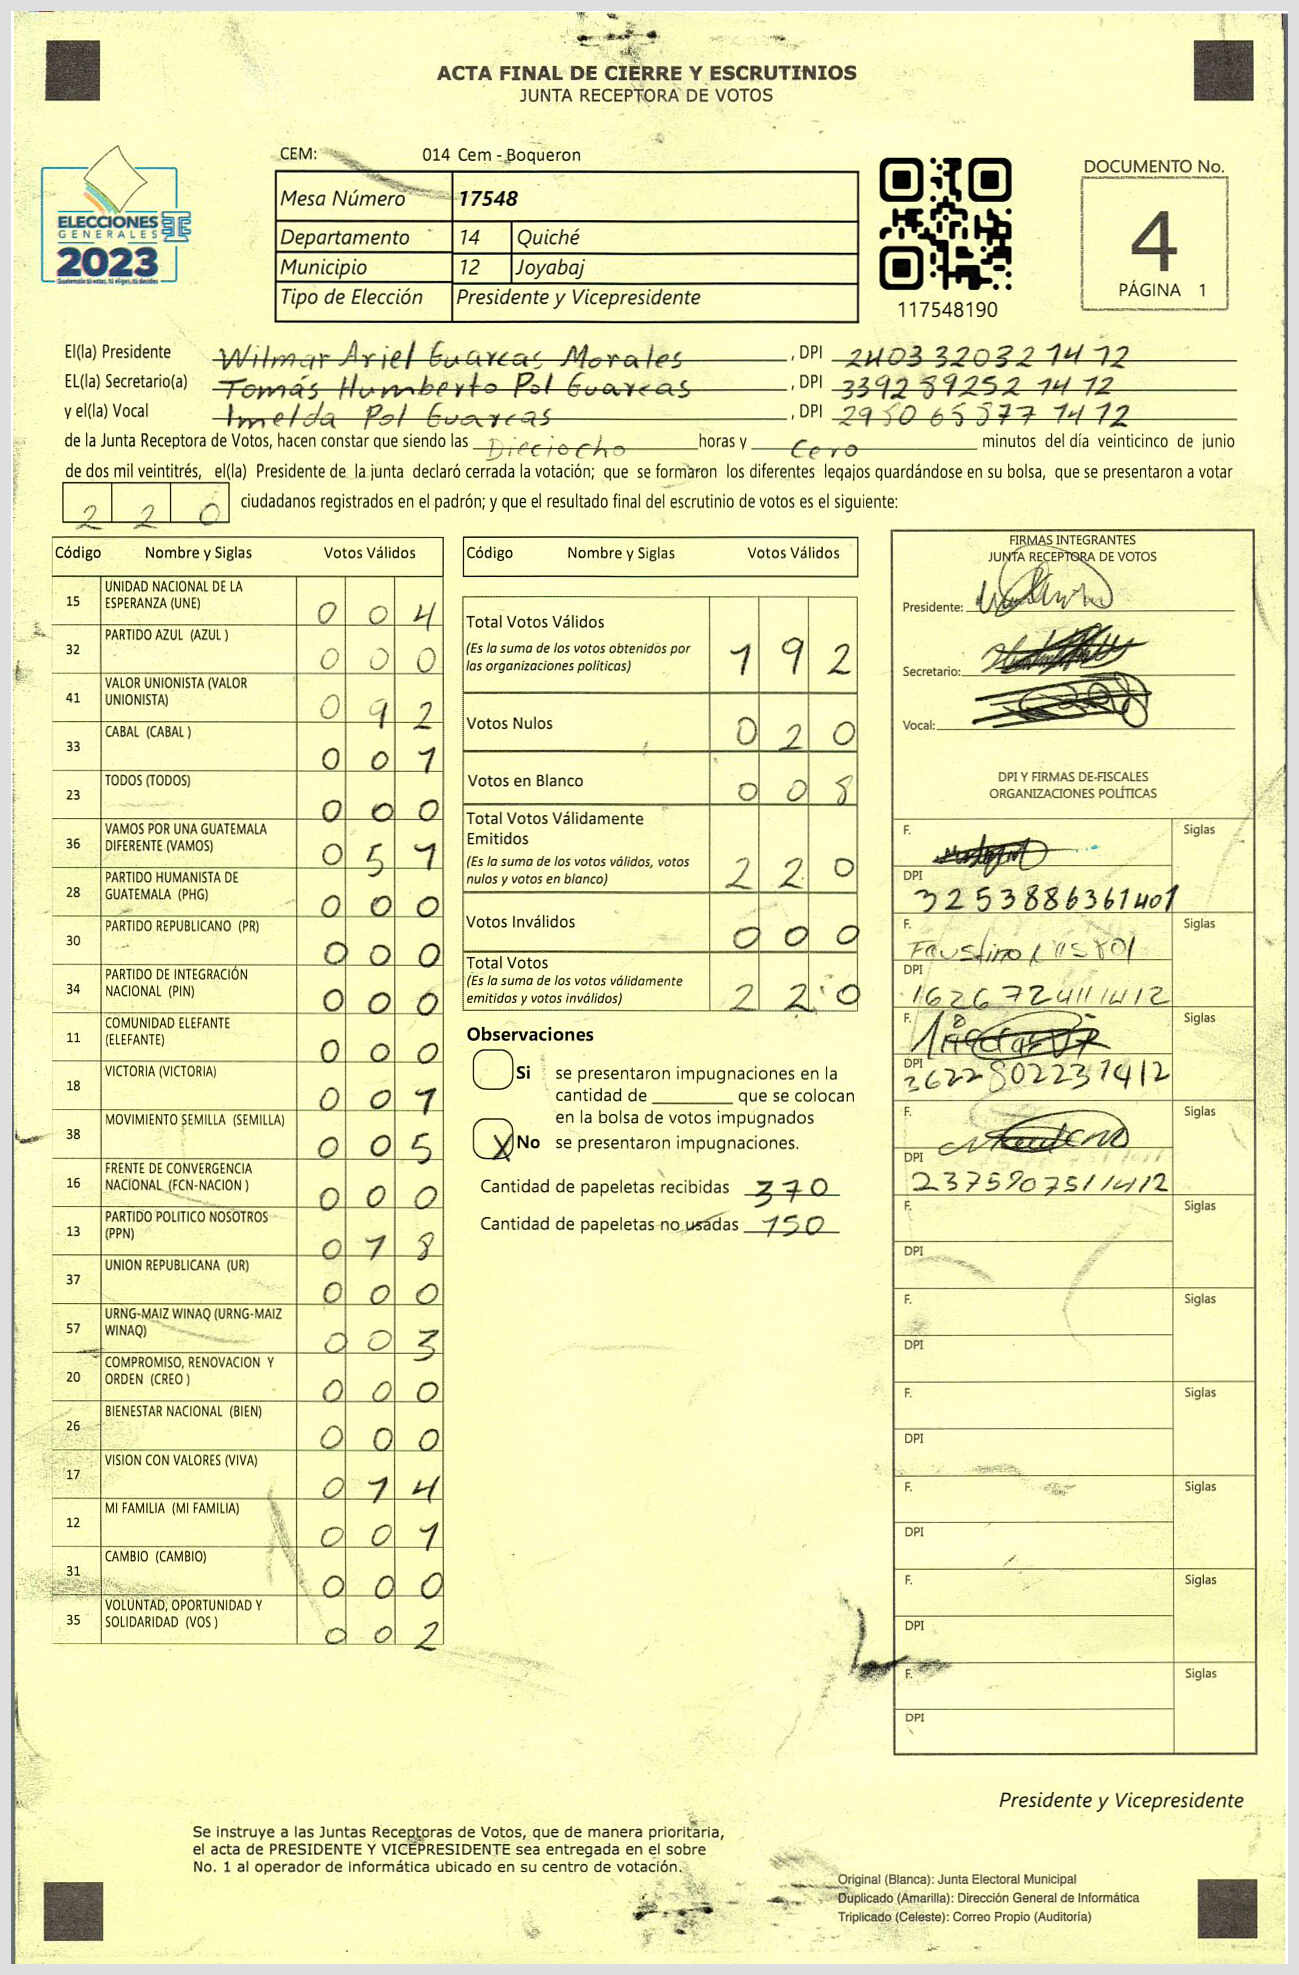 ACTA FINAL DE CIERRE Y ESCRUTINIOS
JUNTA RECEPTORA DE VOTOS
CEM: 014 Cem - Boqueron
ELECCIONES
GENERALES
2023
Mesa Número 17548
Departamento 14 Quiché
Municipio 12 Joyabaj
Tipo de Elección Presidente y Vicepresidente
117548190
DOCUMENTO No.
4
PÁGINA 1
El(la) Presidente Wilmar Ariel Guarcas Morales , DPI 2403320321412
EL(la) Secretario(a) Tomás Humberto Pol Guarcas , DPI 3392892521412
y el(la) Vocal Imelda Pol Guarcas , DPI 2950658771412
de la Junta Receptora de Votos, hacen constar que siendo las Dieciocho horas y Cero minutos del día veinticinco de junio
de dos mil veintitrés, el(la) Presidente de la junta declaró cerrada la votación; que se formaron los diferentes legajos guardándose en su bolsa, que se presentaron a votar
220 ciudadanos registrados en el padrón; y que el resultado final del escrutinio de votos es el siguiente:
Código Nombre y Siglas Votos Válidos
15 UNIDAD NACIONAL DE LA ESPERANZA (UNE) 004
32 PARTIDO AZUL (AZUL ) 000
41 VALOR UNIONISTA (VALOR UNIONISTA) 092
33 CABAL (CABAL ) 001
23 TODOS (TODOS) 000
36 VAMOS POR UNA GUATEMALA DIFERENTE (VAMOS) 051
28 PARTIDO HUMANISTA DE GUATEMALA (PHG) 000
30 PARTIDO REPUBLICANO (PR) 000
34 PARTIDO DE INTEGRACIÓN NACIONAL (PIN) 000
11 COMUNIDAD ELEFANTE (ELEFANTE) 000
18 VICTORIA (VICTORIA) 001
38 MOVIMIENTO SEMILLA (SEMILLA) 005
16 FRENTE DE CONVERGENCIA NACIONAL (FCN-NACION ) 000
13 PARTIDO POLITICO NOSOTROS (PPN) 018
37 UNION REPUBLICANA (UR) 000
57 URNG-MAIZ WINAQ (URNG-MAIZ WINAQ) 003
20 COMPROMISO, RENOVACION Y ORDEN (CREO ) 000
26 BIENESTAR NACIONAL (BIEN) 000
17 VISION CON VALORES (VIVA) 014
12 MI FAMILIA (MI FAMILIA) 001
31 CAMBIO (CAMBIO) 000
35 VOLUNTAD, OPORTUNIDAD Y SOLIDARIDAD (VOS ) 002
Código Nombre y Siglas Votos Válidos
Total Votos Válidos 192
(Es la suma de los votos obtenidos por
las organizaciones políticas)
Votos Nulos 020
Votos en Blanco 008
Total Votos Válidamente
Emitidos 220
(Es la suma de los votos válidos, votos
nulos y votos en blanco)
Votos Inválidos 000
Total Votos 220
(Es la suma de los votos válidamente
emitidos y votos inválidos)
Observaciones
Si se presentaron impugnaciones en la
cantidad de ________ que se colocan
en la bolsa de votos impugnados
X No se presentaron impugnaciones.
Cantidad de papeletas recibidas 370
Cantidad de papeletas no usadas 150
FIRMAS INTEGRANTES
JUNTA RECEPTORA DE VOTOS
Presidente:
Secretario:
Vocal:
DPI Y FIRMAS DE-FISCALES
ORGANIZACIONES POLÍTICAS
F. Siglas
DPI 3253886361401
F. Faustino Siglas
DPI 1626724111412
F. Siglas
DPI 3622802231412
F. Siglas
DPI 2375907511412
F. Siglas
DPI
F. Siglas
DPI
F. Siglas
DPI
F. Siglas
DPI
F. Siglas
DPI
F. Siglas
DPI
Presidente y Vicepresidente
Se instruye a las Juntas Receptoras de Votos, que de manera prioritaria,
el acta de PRESIDENTE Y VICEPRESIDENTE sea entregada en el sobre
No. 1 al operador de informática ubicado en su centro de votación.
Original (Blanca): Junta Electoral Municipal
Duplicado (Amarilla): Dirección General de Informática
Triplicado (Celeste): Correo Propio (Auditoría)